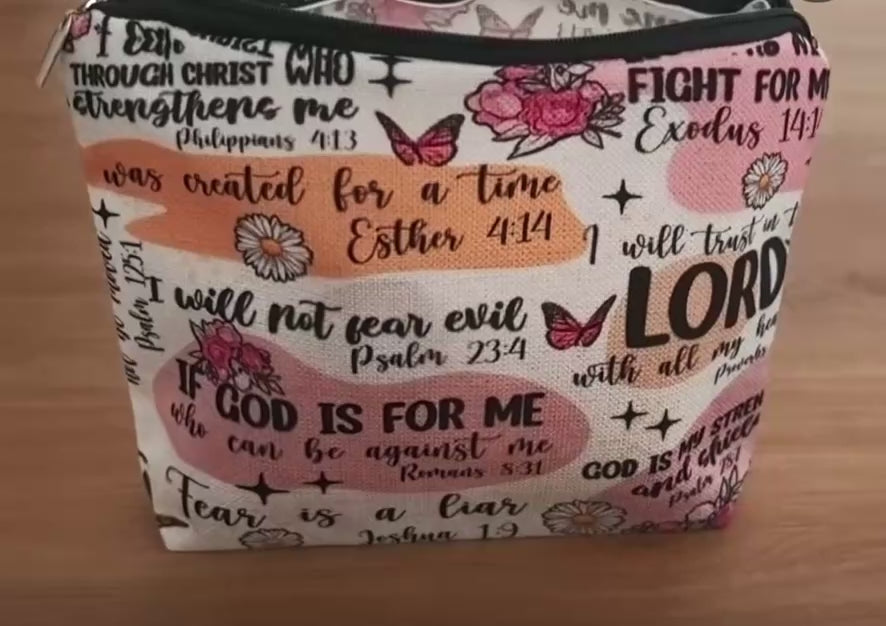 THROUGH CHRIST WHO
strengthens me
Philippians 4:13
FIGHT FOR
Exodus
was created for a time
Esther 4:14
I will trust in
LORD
with all my
Proverbs
Psalm 125:1
I will not fear evil
Psalm 23:4
IF GOD IS FOR ME
who can be against me
Romans 8:31
GOD IS MY
and
Psalm
Fear is a liar
Joshua 1:9